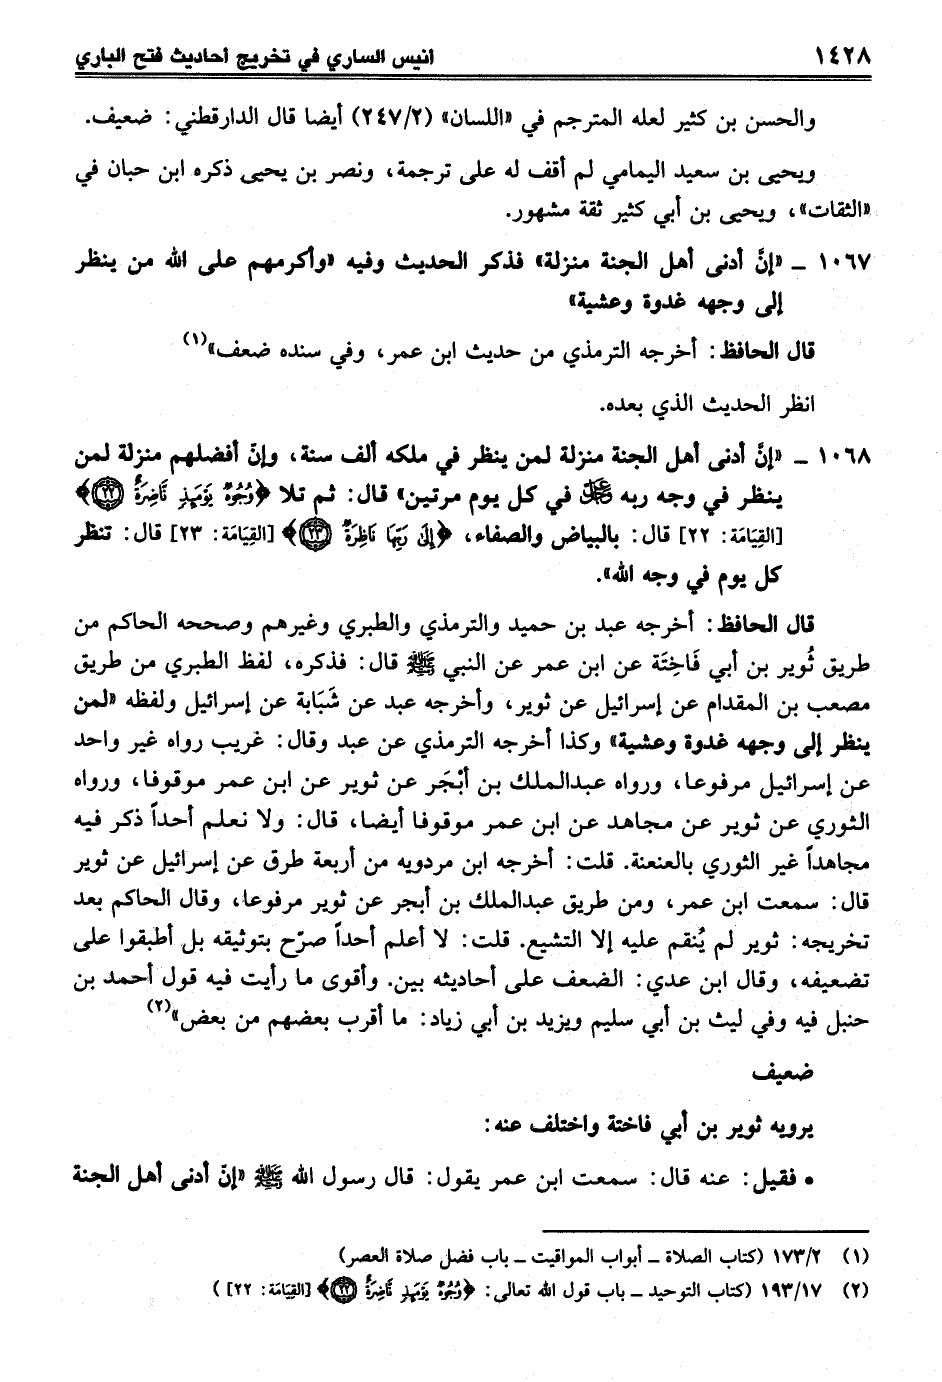 ١٤٢٨ انيس الساري في تخريج أحاديث فتح الباري
والحسن بن كثير لعله المترجم في «اللسان» (٢٤٧/٢) أيضا قال الدارقطني: ضعيف.
ويحيى بن سعيد اليمامي لم أقف له على ترجمة، ونصر بن يحيى ذكره ابن حبان في
«الثقات»، ويحيى بن أبي كثير ثقة مشهور.
١٠٦٧ ـ «إنَّ أدنى أهل الجنة منزلة» فذكر الحديث وفيه «وأكرمهم على الله من ينظر
إلى وجهه غدوة وعشية»
قال الحافظ: أخرجه الترمذي من حديث ابن عمر، وفي سنده ضعف»(١)
انظر الحديث الذي بعده.
١٠٦٨ ـ «إنَّ أدنى أهل الجنة منزلة لمن ينظر في ملكه ألف سنة، وإنّ أفضلهم منزلة لمن
ينظر في وجه ربه ﷻ في كل يوم مرتين» قال: ثم تلا ﴿وُجُوهٌ يَوْمَئِذٍ نَّاضِرَةٌ ٢٢﴾
[القِيَامَة: ٢٢] قال: بالبياض والصفاء، ﴿إِلَىٰ رَبِّهَا نَاظِرَةٌ ٢٣﴾ [القِيَامَة: ٢٣] قال: تنظر
كل يوم في وجه الله».
قال الحافظ: أخرجه عبد بن حميد والترمذي والطبري وغيرهم وصححه الحاكم من
طريق ثُوير بن أبي فَاخِتَة عن ابن عمر عن النبي ﷺ قال: فذكره، لفظ الطبري من طريق
مصعب بن المقدام عن إسرائيل عن ثوير، وأخرجه عبد عن شَبَابة عن إسرائيل ولفظه «لمن
ينظر إلى وجهه غدوة وعشية» وكذا أخرجه الترمذي عن عبد وقال: غريب رواه غير واحد
عن إسرائيل مرفوعا، ورواه عبدالملك بن أبْجَر عن ثوير عن ابن عمر موقوفا، ورواه
الثوري عن ثوير عن مجاهد عن ابن عمر موقوفا أيضا، قال: ولا نعلم أحداً ذكر فيه
مجاهداً غير الثوري بالعنعنة. قلت: أخرجه ابن مردويه من أربعة طرق عن إسرائيل عن ثوير
قال: سمعت ابن عمر، ومن طريق عبدالملك بن أبجر عن ثوير مرفوعا، وقال الحاكم بعد
تخريجه: ثوير لم يُنقم عليه إلا التشيع. قلت: لا أعلم أحداً صرّح بتوثيقه بل أطبقوا على
تضعيفه، وقال ابن عدي: الضعف على أحاديثه بين. وأقوى ما رأيت فيه قول أحمد بن
حنبل فيه وفي ليث بن أبي سليم ويزيد بن أبي زياد: ما أقرب بعضهم من بعض»(٢)
ضعيف
يرويه ثوير بن أبي فاختة واختلف عنه:
• فقيل: عنه قال: سمعت ابن عمر يقول: قال رسول الله ﷺ «إنّ أدنى أهل الجنة
(١) ١٧٣/٢ (كتاب الصلاة ـ أبواب المواقيت ـ باب فضل صلاة العصر)
(٢) ١٩٣/١٧ (كتاب التوحيد ـ باب قول الله تعالى: ﴿وُجُوهٌ يَوْمَئِذٍ نَّاضِرَةٌ ٢٢﴾ [القِيَامَة: ٢٢] )